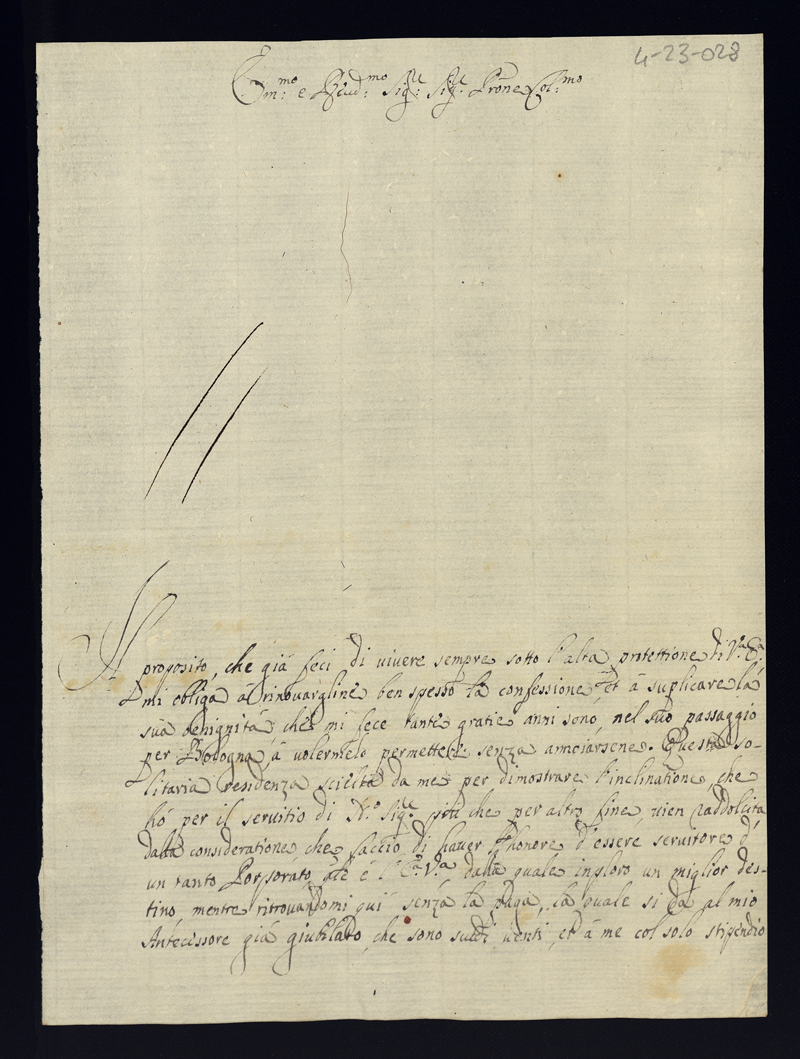 4-23-028
Em:mo e Reud:mo Sig:re Sig:re Prone Col:mo
Il proposito, che già feci di uiuere sempre sotto l'alta protettione di V.a E.a
mi obliga à rinouargline ben spesso la confessione, et à suplicare la
sua benignità, che mi fece tante gratie anni sono, nel suo passaggio
per Bologna, à uolermelo permettere senza annoiarsene. Questa so-
litaria residenza scielta da me per dimostrare l'inclinatione, che
hò per il seruitio di N.o Sig.re più che per altro fine, uien raddolcita
dalla consideratione, che faccio di hauer l'honore d'essere seruitore d'
un tanto Porporato, che è l'E.a V.a dalla quale inploro un miglior des-
tino, mentre ritrouandomi quì senza la paga, la quale si dà al mio
Antecessore già giubilato, che sono scudi uenti, et à me col solo stipendio